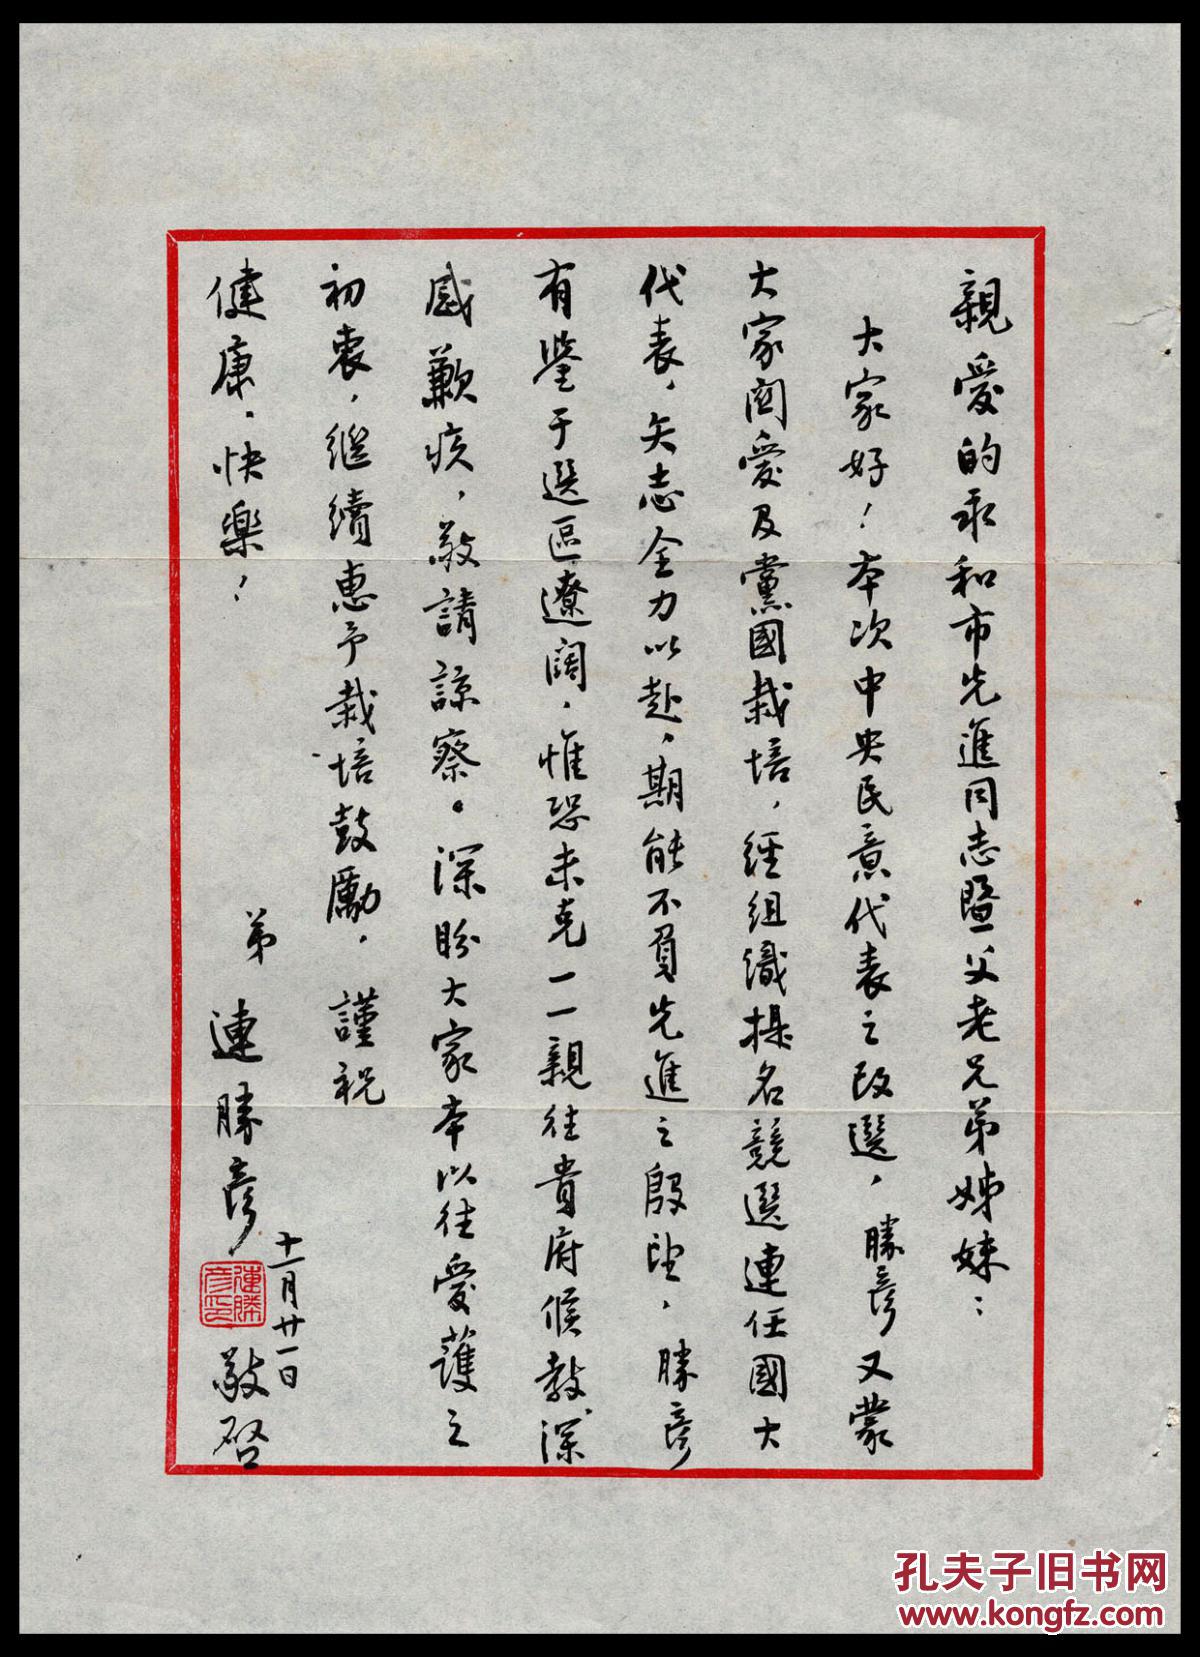 親愛的永和市先進同志暨父老兄弟姊妹：
大家好！本次中央民意代表之改選，勝彥又蒙
大家関愛及黨國栽培，經組織提名競選連任國大
代表，矢志全力以赴，期能不負先進之殷望，勝彥
有鑒于選區遼闊，惟恐未克一一親往貴府候教深
感歉疚，敬請諒察。深盼大家本以往愛護之
初衷，繼續惠予栽培鼓勵，謹祝
健康，快樂！
弟 連勝彥 敬啓
十一月廿一日
連勝彥印
孔夫子旧书网
www.kongfz.com